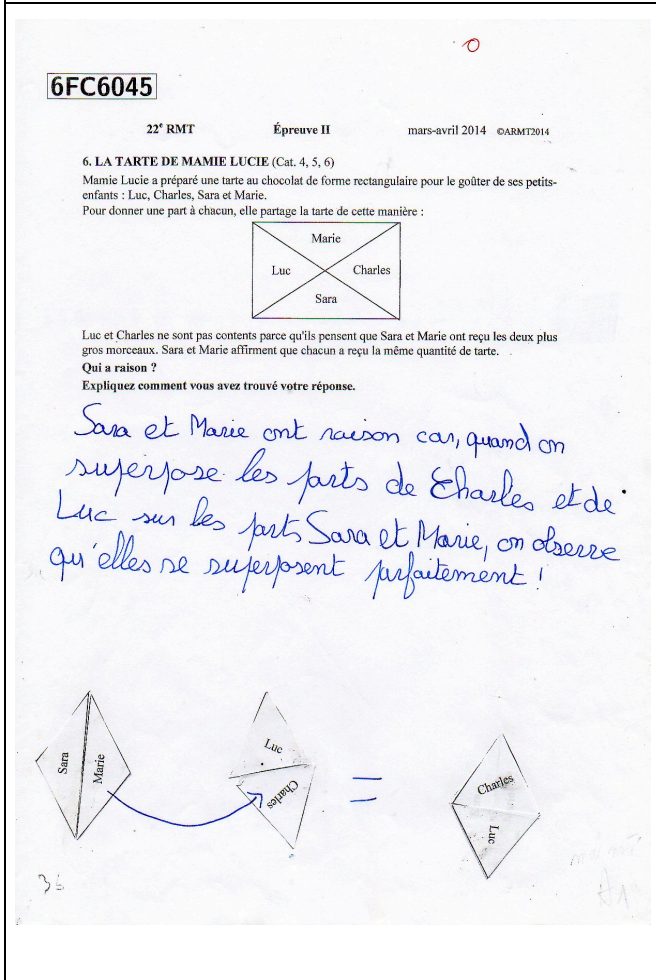 0
6FC6045
22e RMT Épreuve II mars-avril 2014 ©ARMT2014
6. LA TARTE DE MAMIE LUCIE (Cat. 4, 5, 6)
Mamie Lucie a préparé une tarte au chocolat de forme rectangulaire pour le goûter de ses petits-
enfants : Luc, Charles, Sara et Marie.
Pour donner une part à chacun, elle partage la tarte de cette manière :
Marie
Luc Charles
Sara
Luc et Charles ne sont pas contents parce qu'ils pensent que Sara et Marie ont reçu les deux plus
gros morceaux. Sara et Marie affirment que chacun a reçu la même quantité de tarte.
Qui a raison ?
Expliquez comment vous avez trouvé votre réponse.
Sara et Marie ont raison car, quand on
superpose les parts de Charles et de
Luc sur les parts Sara et Marie, on observe
qu'elles se superposent parfaitement !
Sara Marie Luc Charles = Charles Luc